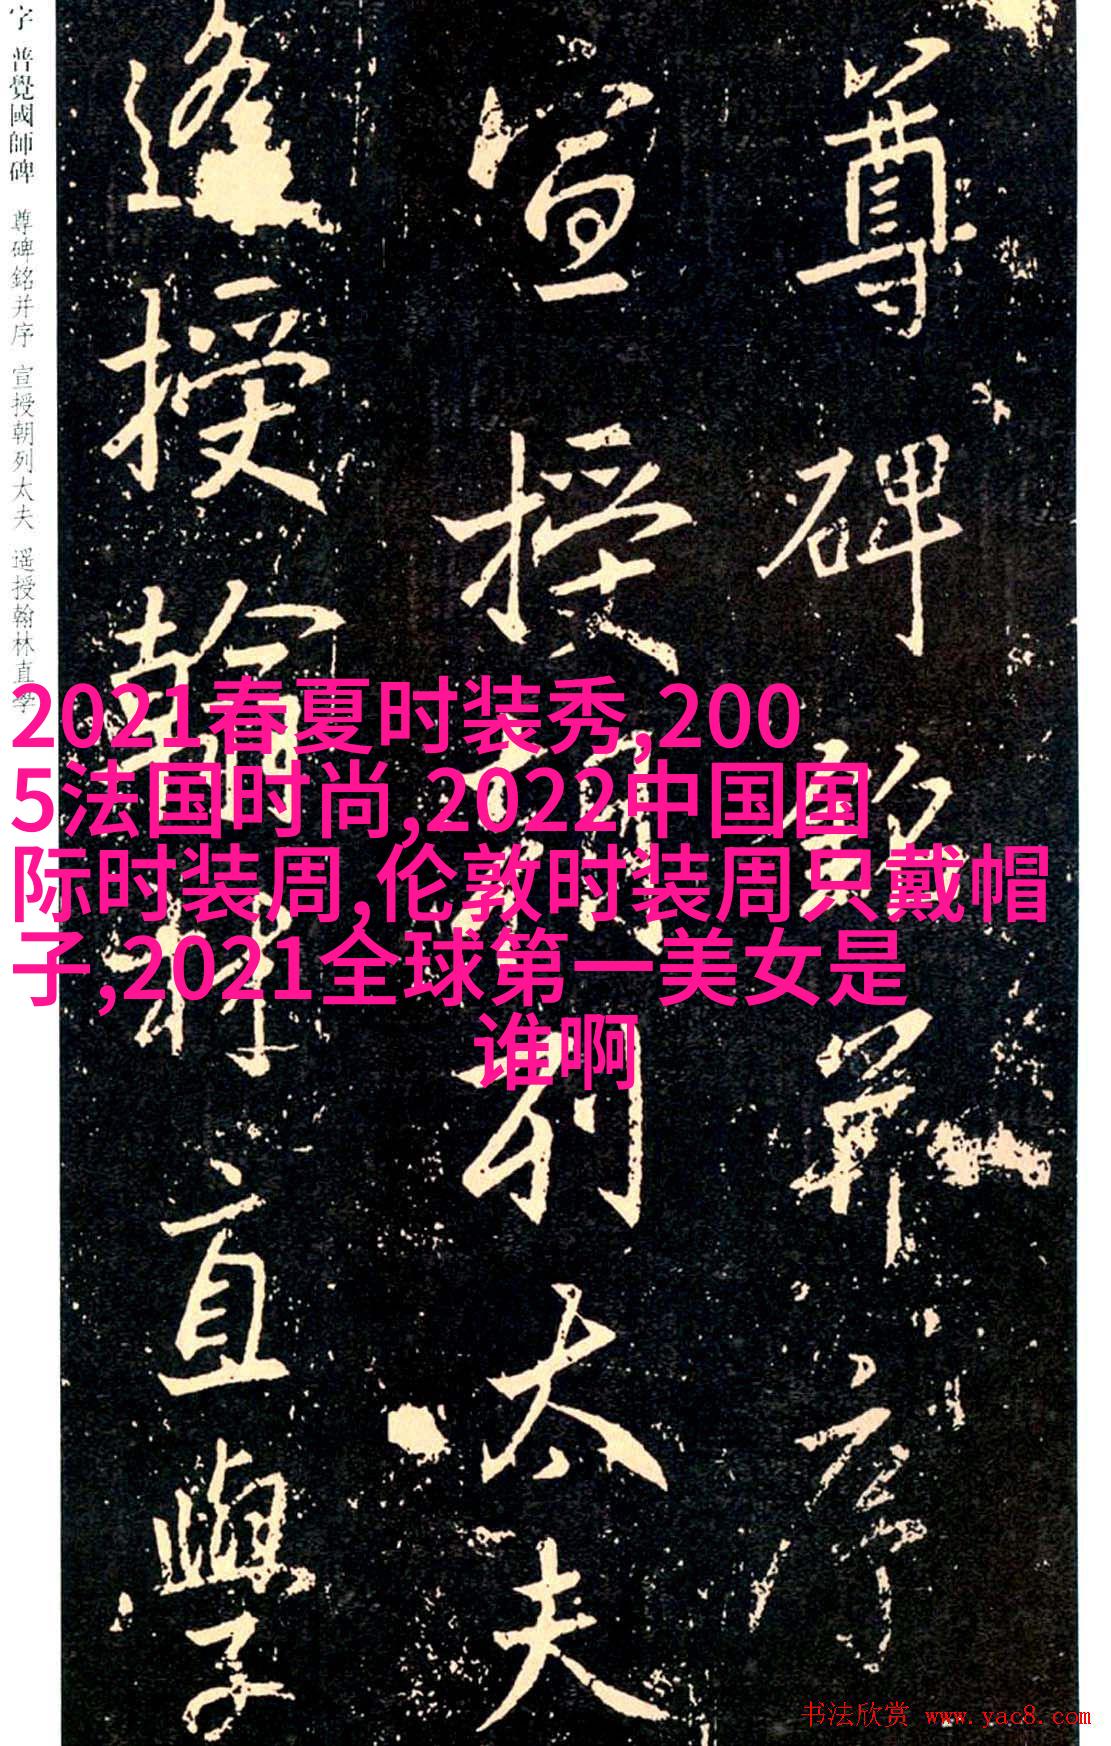 尊碑銘并序
宣授朝列太夫
遥授翰林直學
字 普覺國師碑 尊碑銘并序 宣授朝列太夫 遥授翰林直學
2021春夏时装秀,200
5法国时尚,2022中国国
际时装周,伦敦时装周只戴帽
子,2021全球第一美女是
谁啊
书法欣赏 www.yac8.com